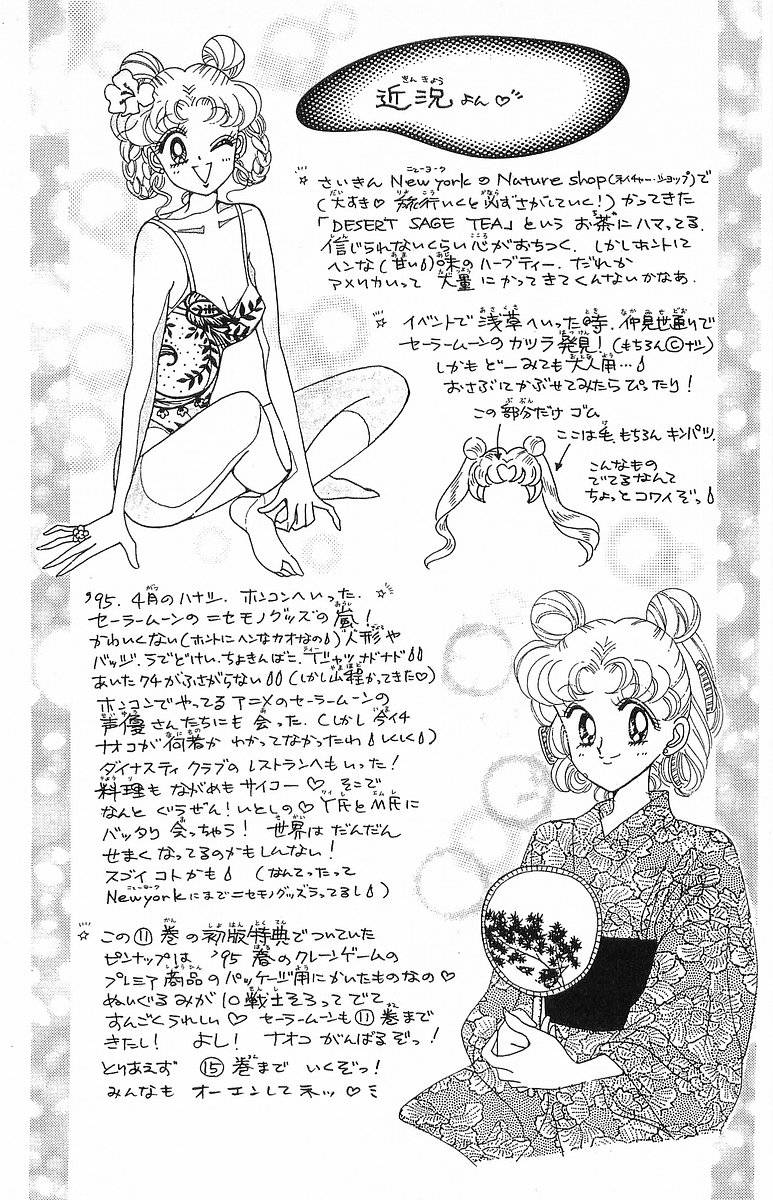 近況よん♡
☆ さいきん New yorkのNature shop(ネイチャー・ショップ)で
(大すき♡ 旅行いくと必ずさがしていく!)かってきた
「DESERT SAGE TEA」という お茶にハマってる.
信じられないくらい心がおちつく. しかしホントに
ヘンな(甘い)味のハーブティー. だれか
アメリカいって 大量にかってきてくんないかなあ.
☆ イベントで浅草へいった時. 仲見世通りで
セーラームーンのカツラ発見! (もちろん©ナシ)
しかもどーみても大人用…
おさぶにかぶせてみたらぴったり!
この部分だけ ゴム
ここは毛. もちろん キンパツ.
こんなもの
でてるなんて
ちょっとコワイぞっ
'95. 4月のハナシ. ホンコンへいった. ☆
セーラームーンのニセモノグッズの嵐!
かわいくない(ホントにヘンなカオなの)人形や
バッジ. うでどけい. ちょきんばこ. Tシャツ ナドナド
あいたクチがふさがらない (しかし山程かってきた♡)
ホンコンでやってるアニメのセーラームーンの
声優さんたちにも 会った. (しかし今イチ
ナオコが何者か わかってなかったわ しくしく)
ダイナスティ クラブのレストランへもいった!
料理もながめもサイコー♡ そこで
なんと ぐうぜん! いとしの♡Y氏とM氏に
バッタり 会っちゃう! 世界は だんだん
せまく なってるのかもしんない!
スゴイ コトかも (なんてったって
New yorkにまでニセモノグッズうってるし)
☆ この⑪巻の初版特典でついていた
ピンナップは '95 春のクレーンゲームの
プレミア商品のパッケージ用にかいたものなの♡
ぬいぐるみが10戦士そろってでて
すんごくうれしい♡ セーラームーンも⑪巻まで
きたし! よし! ナオコ がんばるぞっ!
とりあえず ⑮巻まで いくぞっ!
みんなも オーエンしてネッ♡